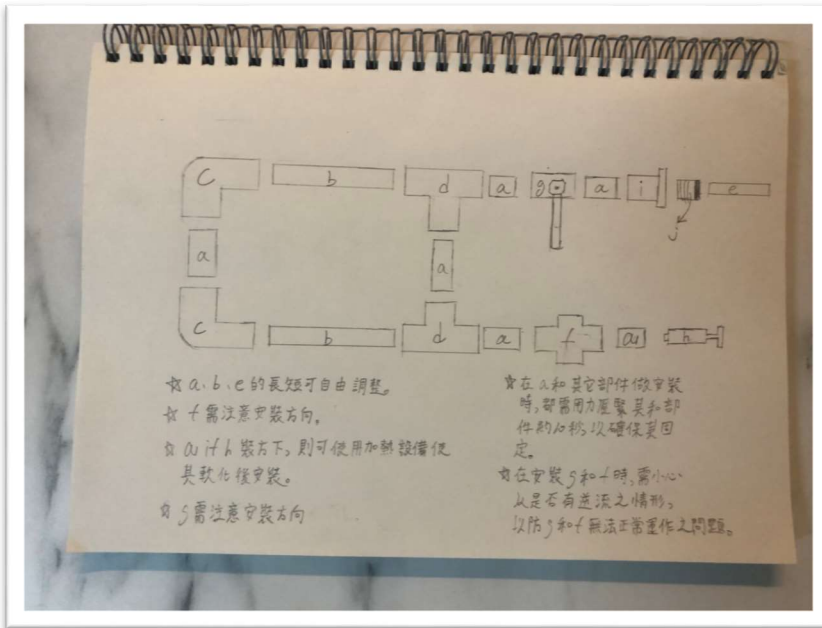 c b d a g a i e
j
a a
c b d a f a h
☆ a、b、e 的長短可自由調整。
☆ f 需注意安裝方向。
☆ a if h 裝不下，則可使用加熱設備使
其軟化後安裝。
☆ g 需注意安裝方向
☆ 在 a 和其它部件做安裝
時，都需用力壓緊其和部
件約10秒，以確保其固
定。
☆ 在安裝 g 和 f 時，需小心
是否有逆流之情形，
以防 g 和 f 無法正常運作之問題。